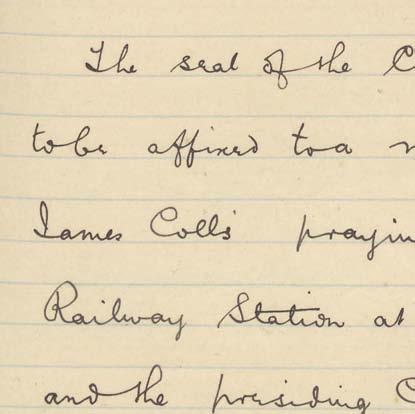 The seal of the C
to be affixed to a
James Colls' prayin
Railway Station at
and the presiding C